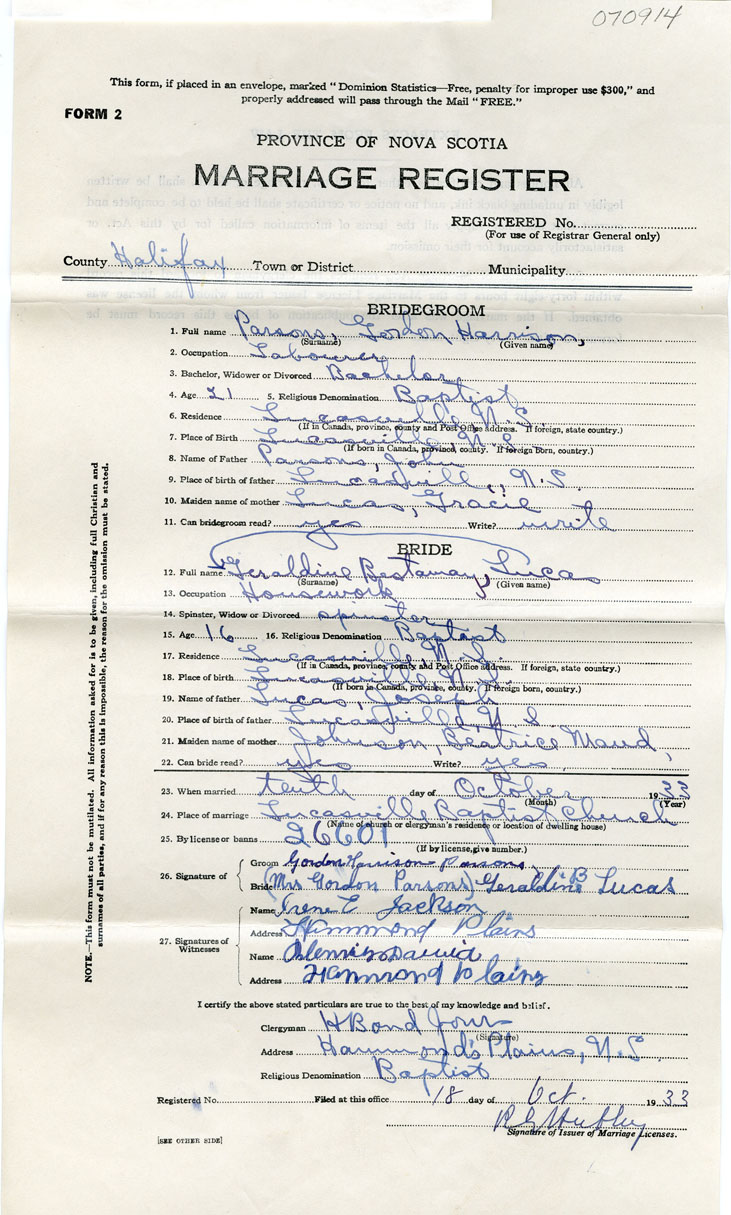 070914
This form, if placed in an envelope, marked "Dominion Statistics—Free, penalty for improper use $300," and
properly addressed will pass through the Mail "FREE."
FORM 2
PROVINCE OF NOVA SCOTIA
MARRIAGE REGISTER
REGISTERED No.
(For use of Registrar General only)
County Halifax Town or District Municipality
BRIDEGROOM
1. Full name Parsons, Gordon Harrison,
(Surname) (Given name)
2. Occupation Labourer
3. Bachelor, Widower or Divorced Bachelor
4. Age 21 5. Religious Denomination Baptist
6. Residence Lucasville, N.S.
(If in Canada, province, county and Post Office address. If foreign, state country.)
7. Place of Birth Lucasville, N.S.
(If born in Canada, province, county. If foreign born, country.)
8. Name of Father Parsons, John
9. Place of birth of father Lucasville, N.S.
10. Maiden name of mother Lucas, Gracie
11. Can bridegroom read? yes Write? write
BRIDE
12. Full name Geraldine Lucas
(Surname) (Given name)
13. Occupation Housework
14. Spinster, Widow or Divorced spinster
15. Age 16 16. Religious Denomination Baptist
17. Residence Lucasville, N.S.
(If in Canada, province, county and Post Office address. If foreign, state country.)
18. Place of birth Lucasville, N.S.
(If born in Canada, province, county. If foreign born, country.)
19. Name of father Lucas, Joseph
20. Place of birth of father Lucasville, N.S.
21. Maiden name of mother Johnson, Beatrice Maud,
22. Can bride read? yes Write? yes
23. When married tenth day of October 1933
(Month) (Year)
24. Place of marriage Lucasville Baptist Church
(Name of church or clergyman's residence or location of dwelling house)
25. By license or banns 26601
(If by license, give number.)
26. Signature of
Groom Gordon Harrison Parsons.
Bride (Mrs Gordon Parsons) Geraldine B Lucas
27. Signatures of Witnesses
Name Irene E Jackson
Address Hammond Plains
Name
Address Hammond Plains
I certify the above stated particulars are true to the best of my knowledge and belief.
Clergyman H Bond Jones
(Signature)
Address Hammond's Plains, N.S.
Religious Denomination Baptist
Registered No. Filed at this office 18 day of Oct. 1933
Signature of Issuer of Marriage Licenses.
[SEE OTHER SIDE]
NOTE.—This form must not be mutilated. All information asked for is to be given, including full Christian and
surnames of all parties, and if for any reason this is impossible, the reason for the omission must be stated.